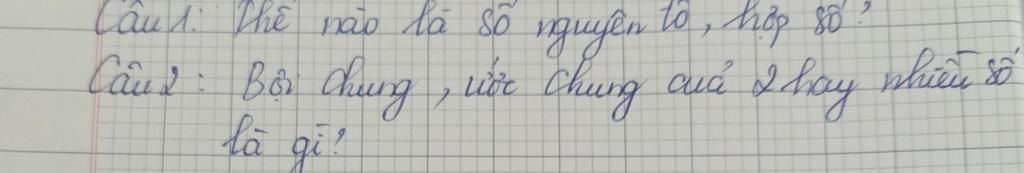 Câu 1: Thế nào là số nguyên tố, hợp số?
Câu 2: Bội chung, ước chung cuả 2 hay nhiều số
là gì?